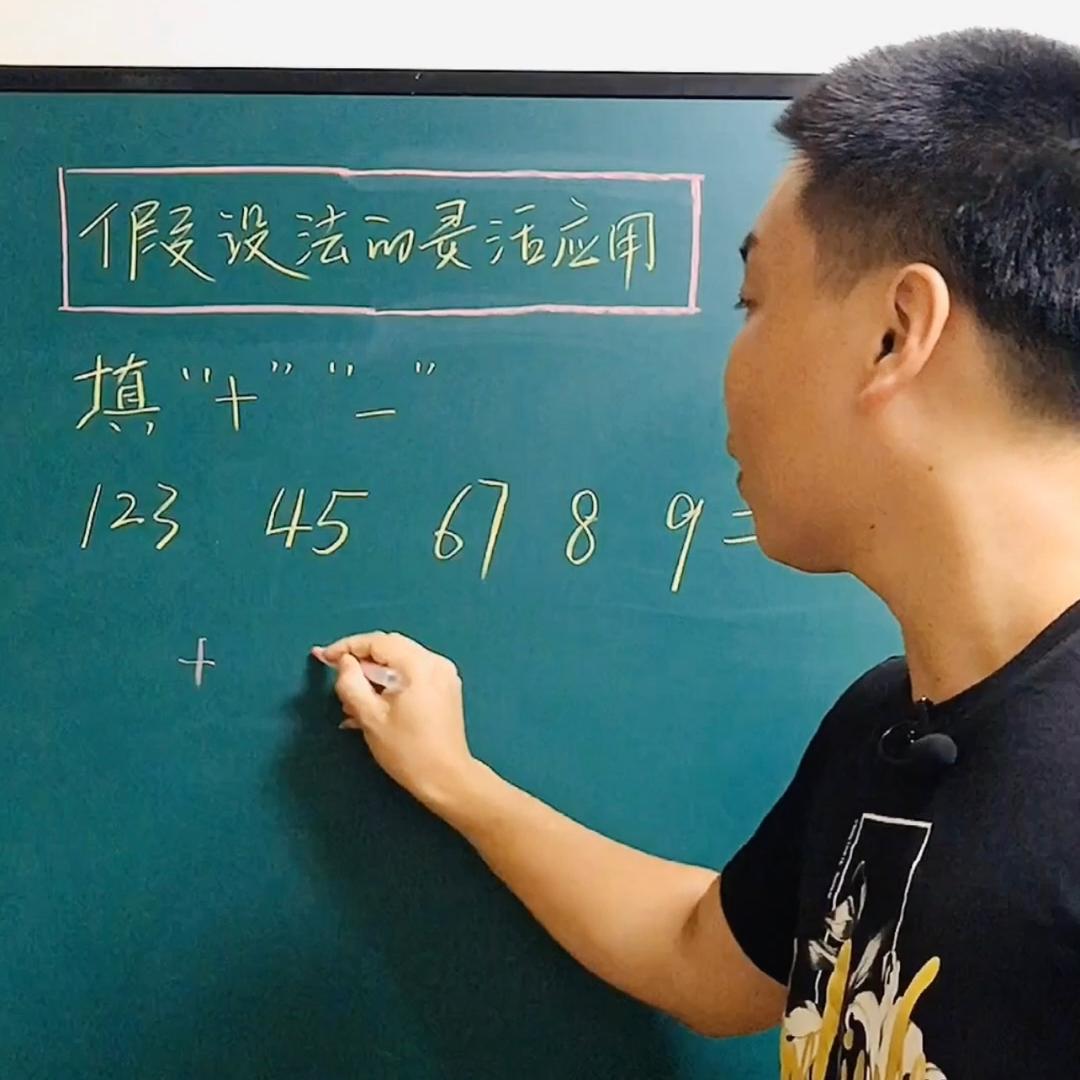 假设法的灵活应用
填“+”“-”
123 45 67 8 9 =
+